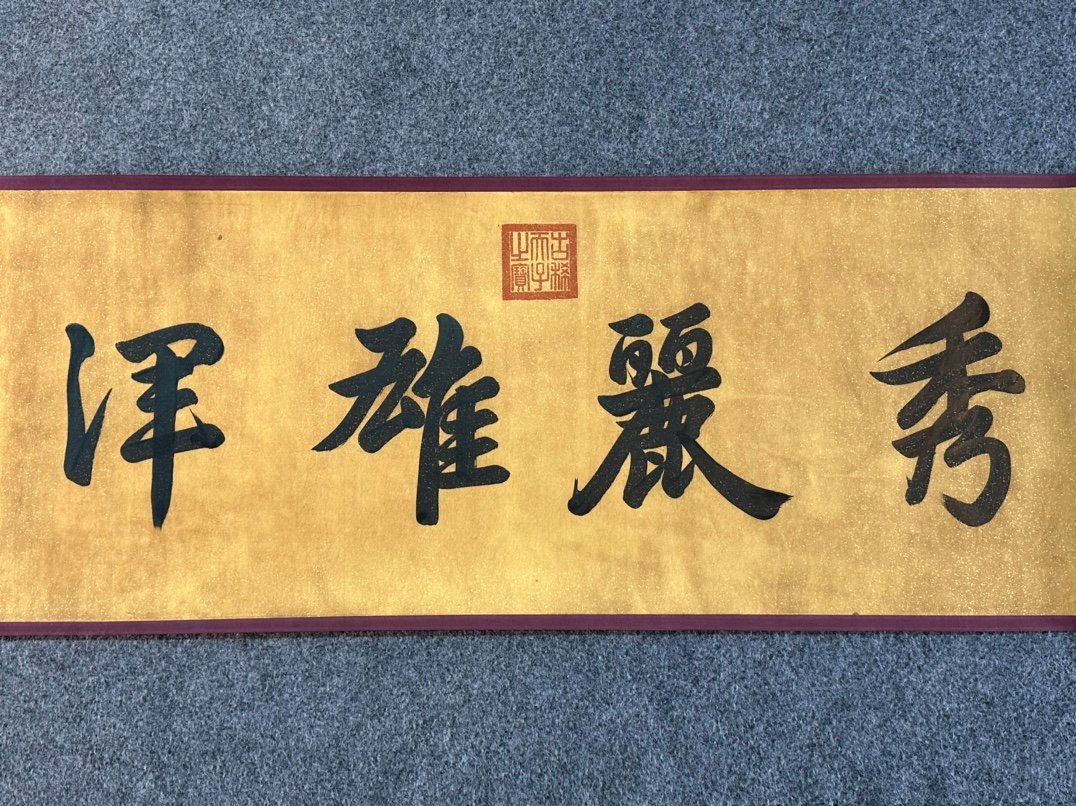 秀麗雄渾
古稀天子之寶